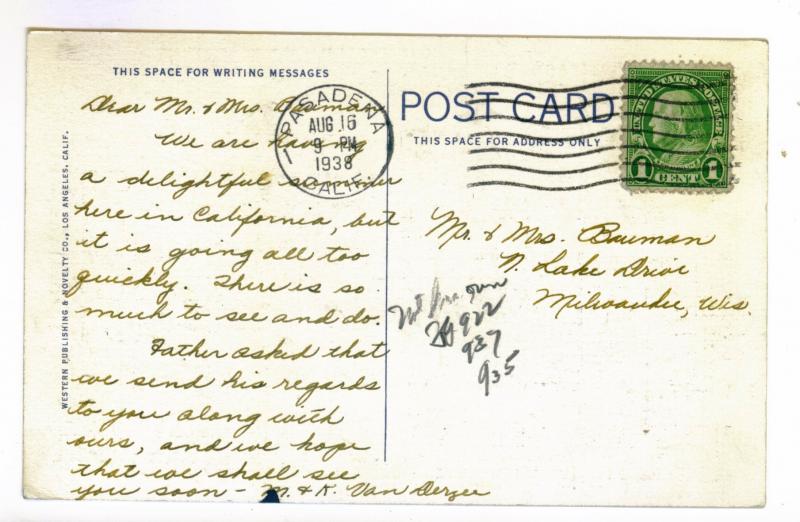 THIS SPACE FOR WRITING MESSAGES
Dear Mr. & Mrs. Bauman
We are having
a delightful summer
here in California, but
it is going all too
quickly. There is so
much to see and do.
Father asked that
we send his regards
to you along with
ours, and we hope
that we shall see
you soon - M. & K. Van Derzee
WESTERN PUBLISHING & NOVELTY CO., LOS ANGELES, CALIF.
PASADENA
1
AUG 16
9 PM
1938
CALIF.
POST CARD
THIS SPACE FOR ADDRESS ONLY
UNITED STATES POSTAGE
1 CENT 1
Mr. & Mrs. Bauman
N. Lake Drive
Milwaukee, Wis.
922
937
935